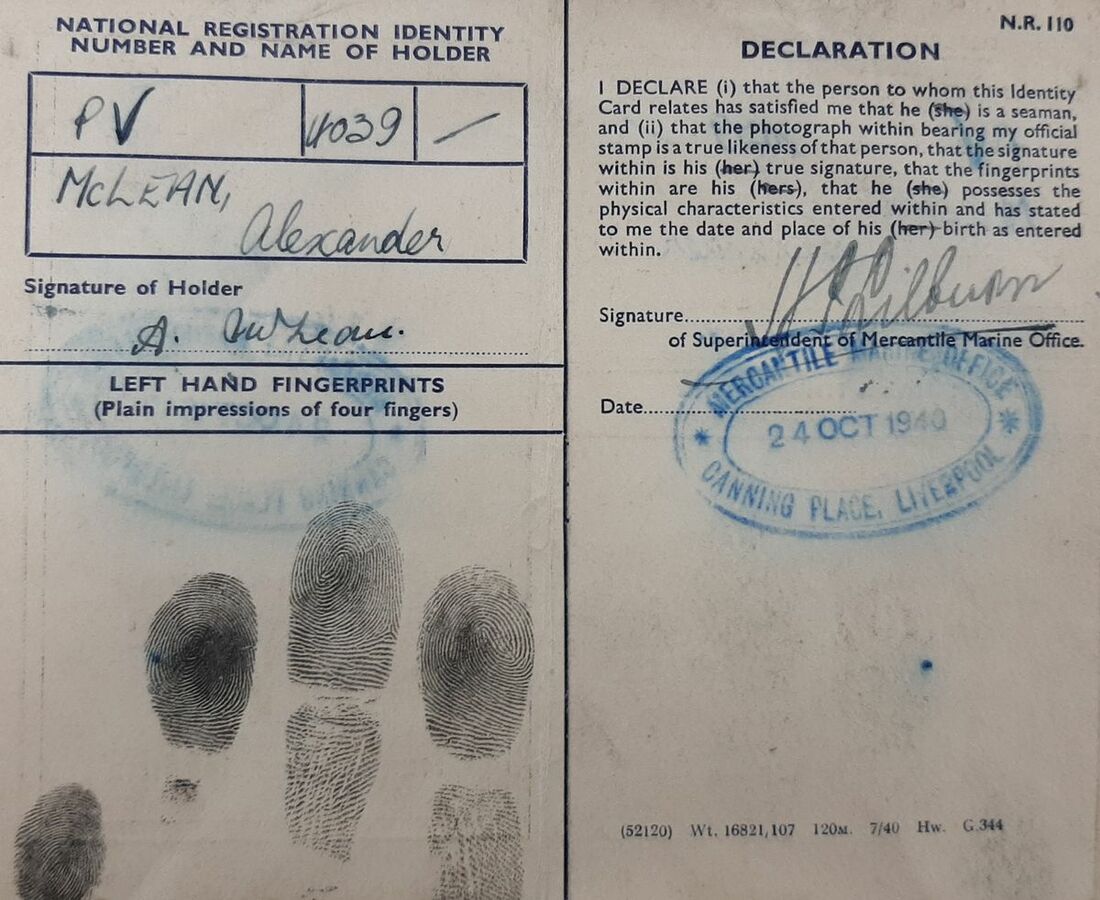 NATIONAL REGISTRATION IDENTITY
NUMBER AND NAME OF HOLDER
PV 4039 —
McLEAN,
Alexander
Signature of Holder
A. McLean.
LEFT HAND FINGERPRINTS
(Plain impressions of four fingers)
N.R. 110
DECLARATION
I DECLARE (i) that the person to whom this Identity
Card relates has satisfied me that he (she) is a seaman,
and (ii) that the photograph within bearing my official
stamp is a true likeness of that person, that the signature
within is his (her) true signature, that the fingerprints
within are his (hers), that he (she) possesses the
physical characteristics entered within and has stated
to me the date and place of his (her) birth as entered
within.
Signature
of Superintendent of Mercantile Marine Office.
MERCANTILE MARINE OFFICE
Date
24 OCT 1940
CANNING PLACE, LIVERPOOL
(52120) Wt. 16821,107 120M. 7/40 Hw. G.344